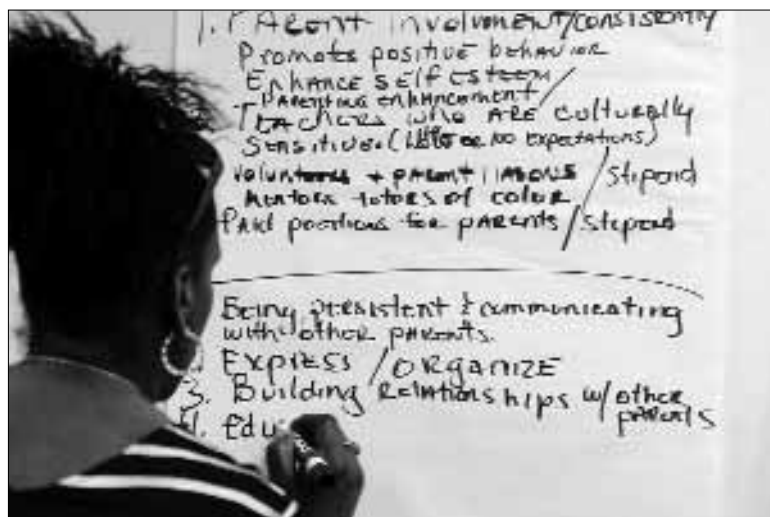 1. PARENT INVOLVMENT/CONSISTENTLY
Promotes positive behavior
ENHANCE SELF ESTEEM
PARENTING ENHANCEMENT/
TEACHERS WHO ARE CULTURALLY
SENSITIVE. ( OR NO EXPECTATIONS)
Volunteers + PARENT LIAISONS / Stipend
Mentors tutors of color
PAID positions for PARENTS / Stipend
Being persistent & communicating
with other PARENTS.
EXPRESS / ORGANIZE
3. Building RELATIONSHIPS w/other
PARENTS
4. Edu